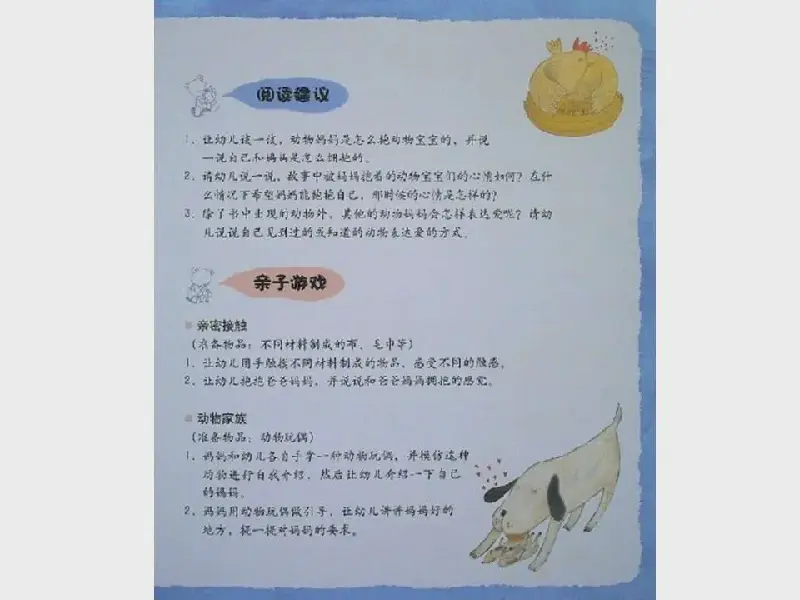 阅读建议
1、让幼儿读一读，动物妈妈是怎么抱动物宝宝的，并说
一说自己和妈妈是怎么拥抱的。
2、请幼儿说一说，故事中被妈妈抱着的动物宝宝们的心情如何？在什
么情况下希望妈妈能抱抱自己，那时候的心情是怎样的？
3、除了书中出现的动物外，其他的动物妈妈会怎样表达爱呢？请幼
儿说说自己见到过的或知道的动物表达爱的方式。
亲子游戏
亲密接触
（准备物品：不同材料制成的布、毛巾等）
1、让幼儿用手触摸不同材料制成的物品，感受不同的触感。
2、让幼儿抱抱爸爸妈妈，并说说和爸爸妈妈拥抱的感觉。
动物家族
（准备物品：动物玩偶）
1、妈妈和幼儿各自手拿一种动物玩偶，并模仿这种
动物进行自我介绍，然后让幼儿介绍一下自己
的妈妈。
2、妈妈用动物玩偶做引导，让幼儿讲讲妈妈好的
地方，提一提对妈妈的要求。